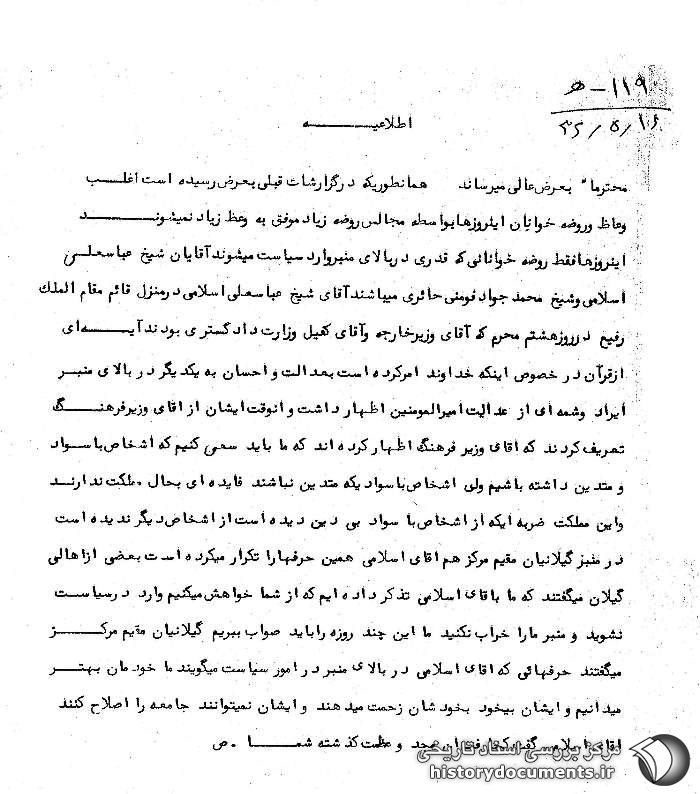 ۱۱۹-ه
۳۲/۵/۱۶
اطلاعیه
محترما" بعرض عالی میرساند همانطوریکه در گزارشات قبلی بعرض رسیده است اغلب
وعاظ وروضه خوانان اینروزها بواسطه مجالس روضه زیاد موفق به وعظ زیاد نمیشوند
اینروزها فقط روضه خوانانی که قدری در بالای منبر وارد سیاست میشوند آقایان شیخ عباسعلی
اسلامی وشیخ محمد جواد فومنی حائری میباشند آقای شیخ عباسعلی اسلامی در منزل قائم مقام الملک
رفیع در روز هشتم محرم که آقای وزیر خارجه وآقای کفیل وزارت دادگستری بودند آیه ای
از قرآن در خصوص اینکه خداوند امر کرده است بعدالت و احسان به یکدیگر در بالای منبر
ایراد وشمه ای از عدالت امیرالمومنین اظهار داشت و انوقت ایشان از اقای وزیر فرهنگ
تعریف کردند که اقای وزیر فرهنگ اظهار کرده اند که ما باید سعی کنیم که اشخاص با سواد
و متدین داشته باشیم ولی اشخاص با سوادیکه متدین نباشند فایده ای بحال مملکت ندارند
واین مملکت ضربه ایکه از اشخاص با سواد بی دین دیده است از اشخاص دیگر ندیده است
در منبر گیلانیان مقیم مرکز هم اقای اسلامی همین حرفها را تکرار میکرده است بعضی از اهالی
گیلان میگفتند که ما باقای اسلامی تذکر داده ایم که از شما خواهش میکنیم وارد در سیاست
نشوید و منبر ما را خراب نکنید ما این چند روزه را باید صواب ببریم گیلانیان مقیم مرکز
میگفتند حرفهائی که اقای اسلامی در بالای منبر در امور سیاست میگویند ما خودمان بهتر
میدانیم و ایشان بیخود بخودشان زحمت میدهند و ایشان نمیتوانند جامعه را اصلاح کنند
اقای اسلامی گفت مجد و عظمت گذشته شما . ص
مرکز بررسی اسناد تاریخی
historydocuments.ir